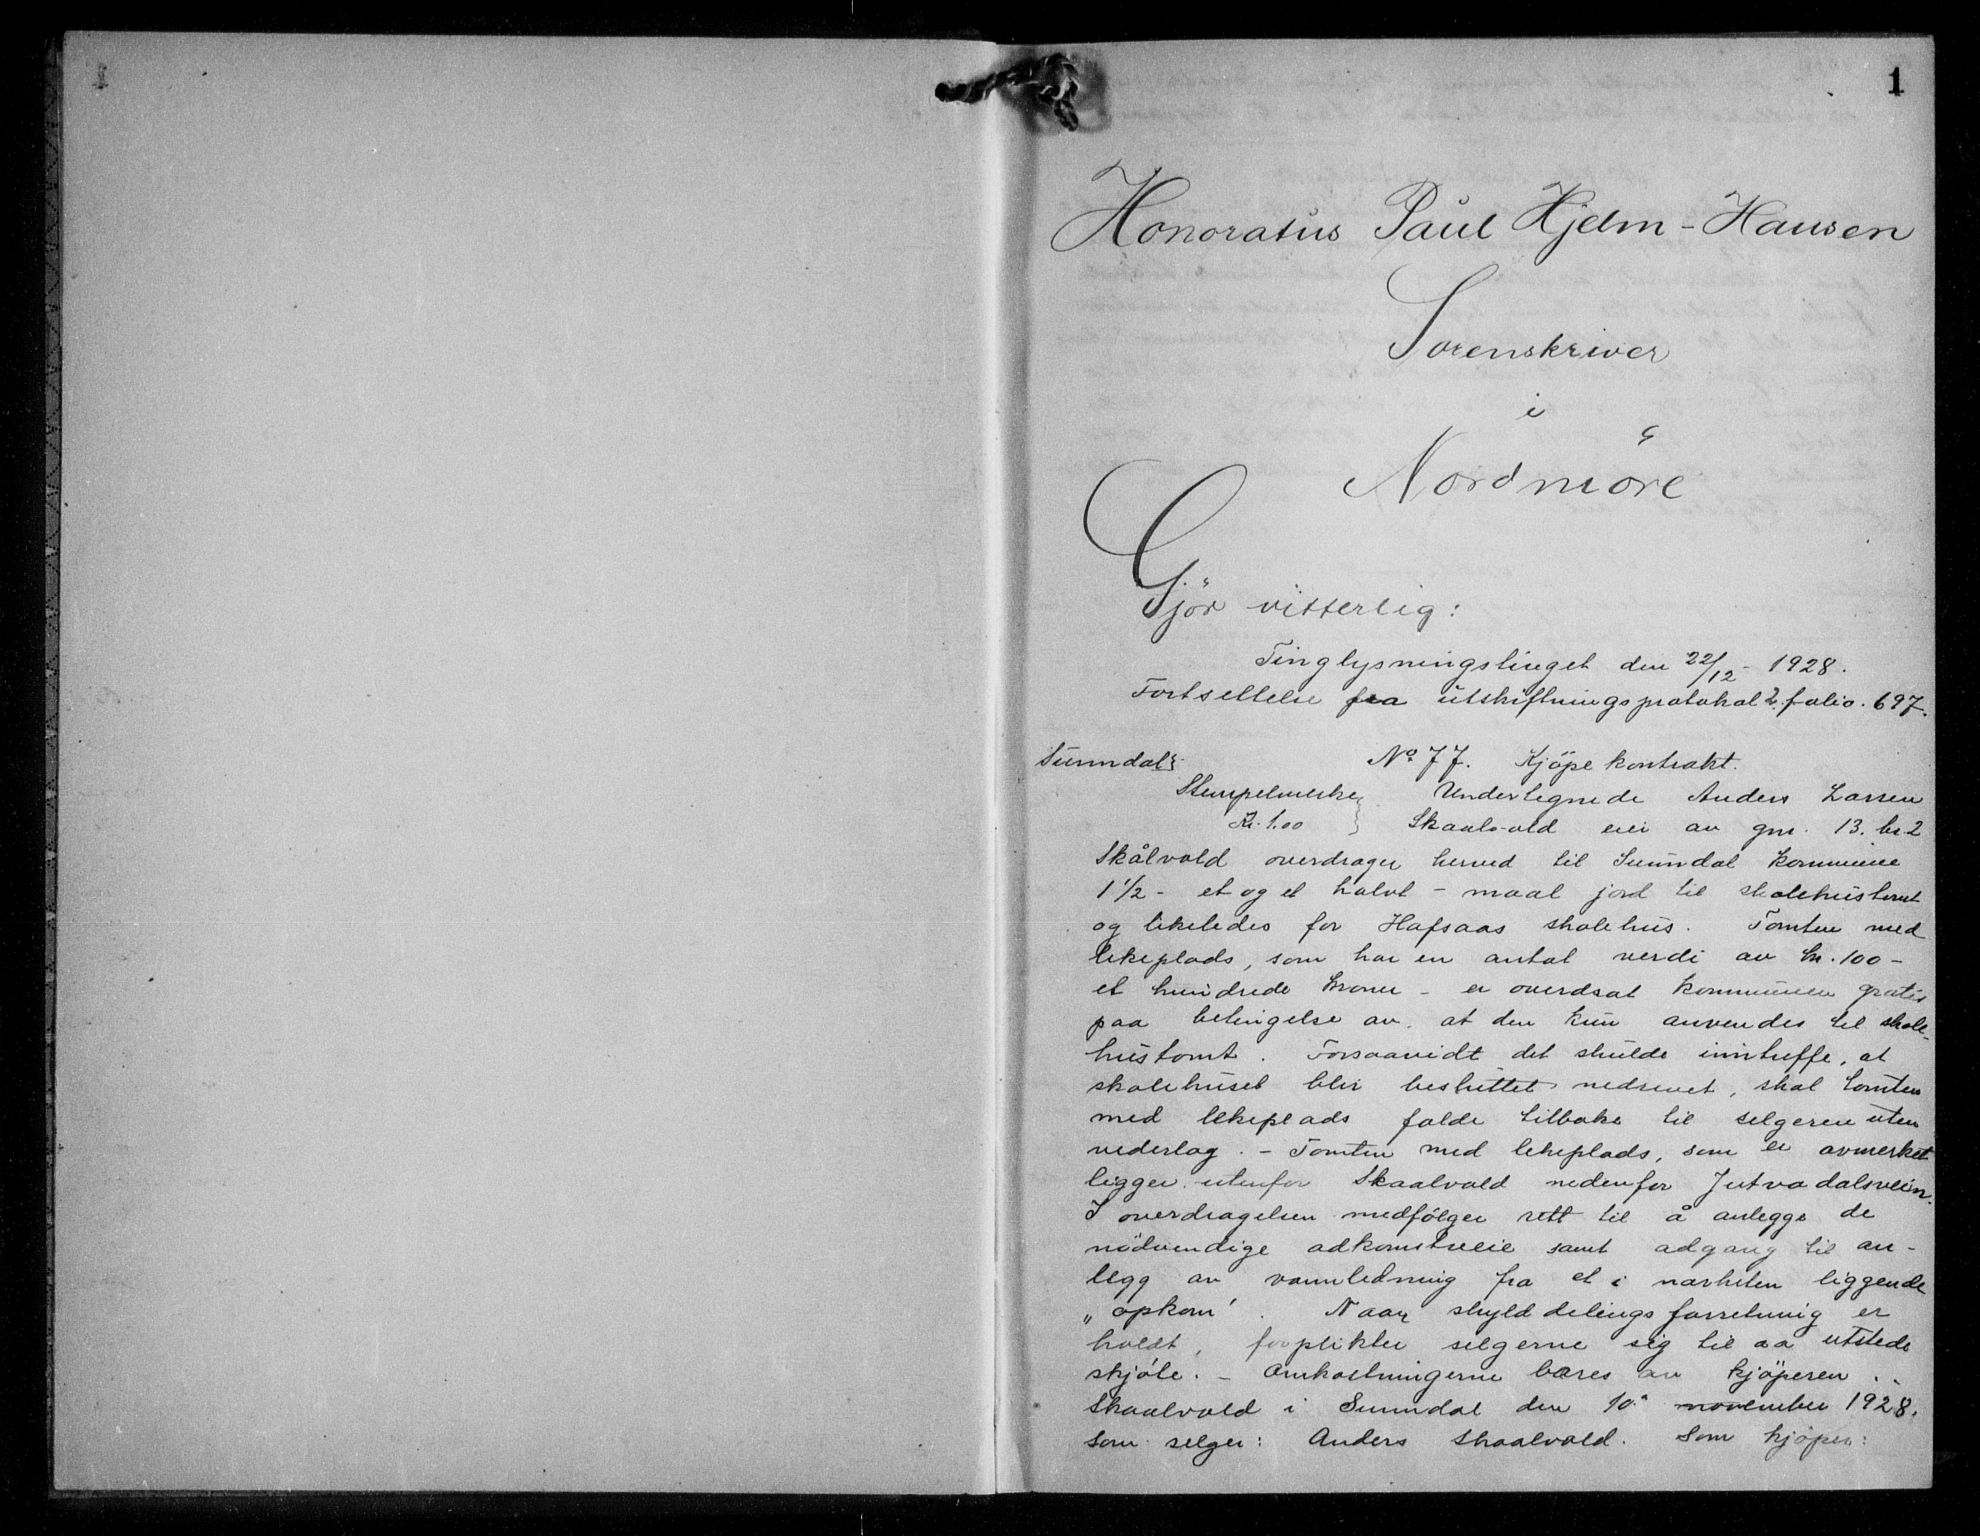 1
Honoratus Paul Hjelm-Hansen
Sorenskriver
i
Nordmöre
Gjör vitterlig:
Tinglysningstinget den 22/12 - 1928.
Fortsettelse fra utskiftningsprotokol 2. folio. 697.
Sunndal:
No 77. Kjöpekontrakt.
Stempelmerke Undertegnede Anders Larsen
Kr. 1.00 Skaalvold eier av gnr. 13. br. 2
Skålvold overdrager herved til Sunndal kommune
1 1/2 - et og et halvt - maal jord til skolehustomt
og likeledes for Hafsaas skolehus. Tomten med
lekeplads, som har en antat verdi av kr. 100 -
et hundrede kroner - er overdrat kommunen gratis
paa betingelse av, at den kun anvendes til skole-
hustomt. Forsaavidt det skulde inntreffe, at
skolehuset blir besluttet nedrevet, skal tomten
med lekeplads falde tilbake til selgeren uten
vederlag. - Tomten med lekeplads, som er avmerket
ligger utenfor Skaalvold nedenfor Jutvadalsveien.
I overdragelsen medfölger rett til å anlegge de
nödvendige adkomstveie samt adgang til an-
legg av vannledning fra et i nærheten liggende
„opkom". Naar skylddelingsforretning er
holdt, forplikter selgerne sig til aa utstede
skjöte. - Omkostningerne bæres av kjöperen.
Skaalvold i Sunndal den 10. november 1928.
Som selger: Anders Skaalvold. Som kjöper: